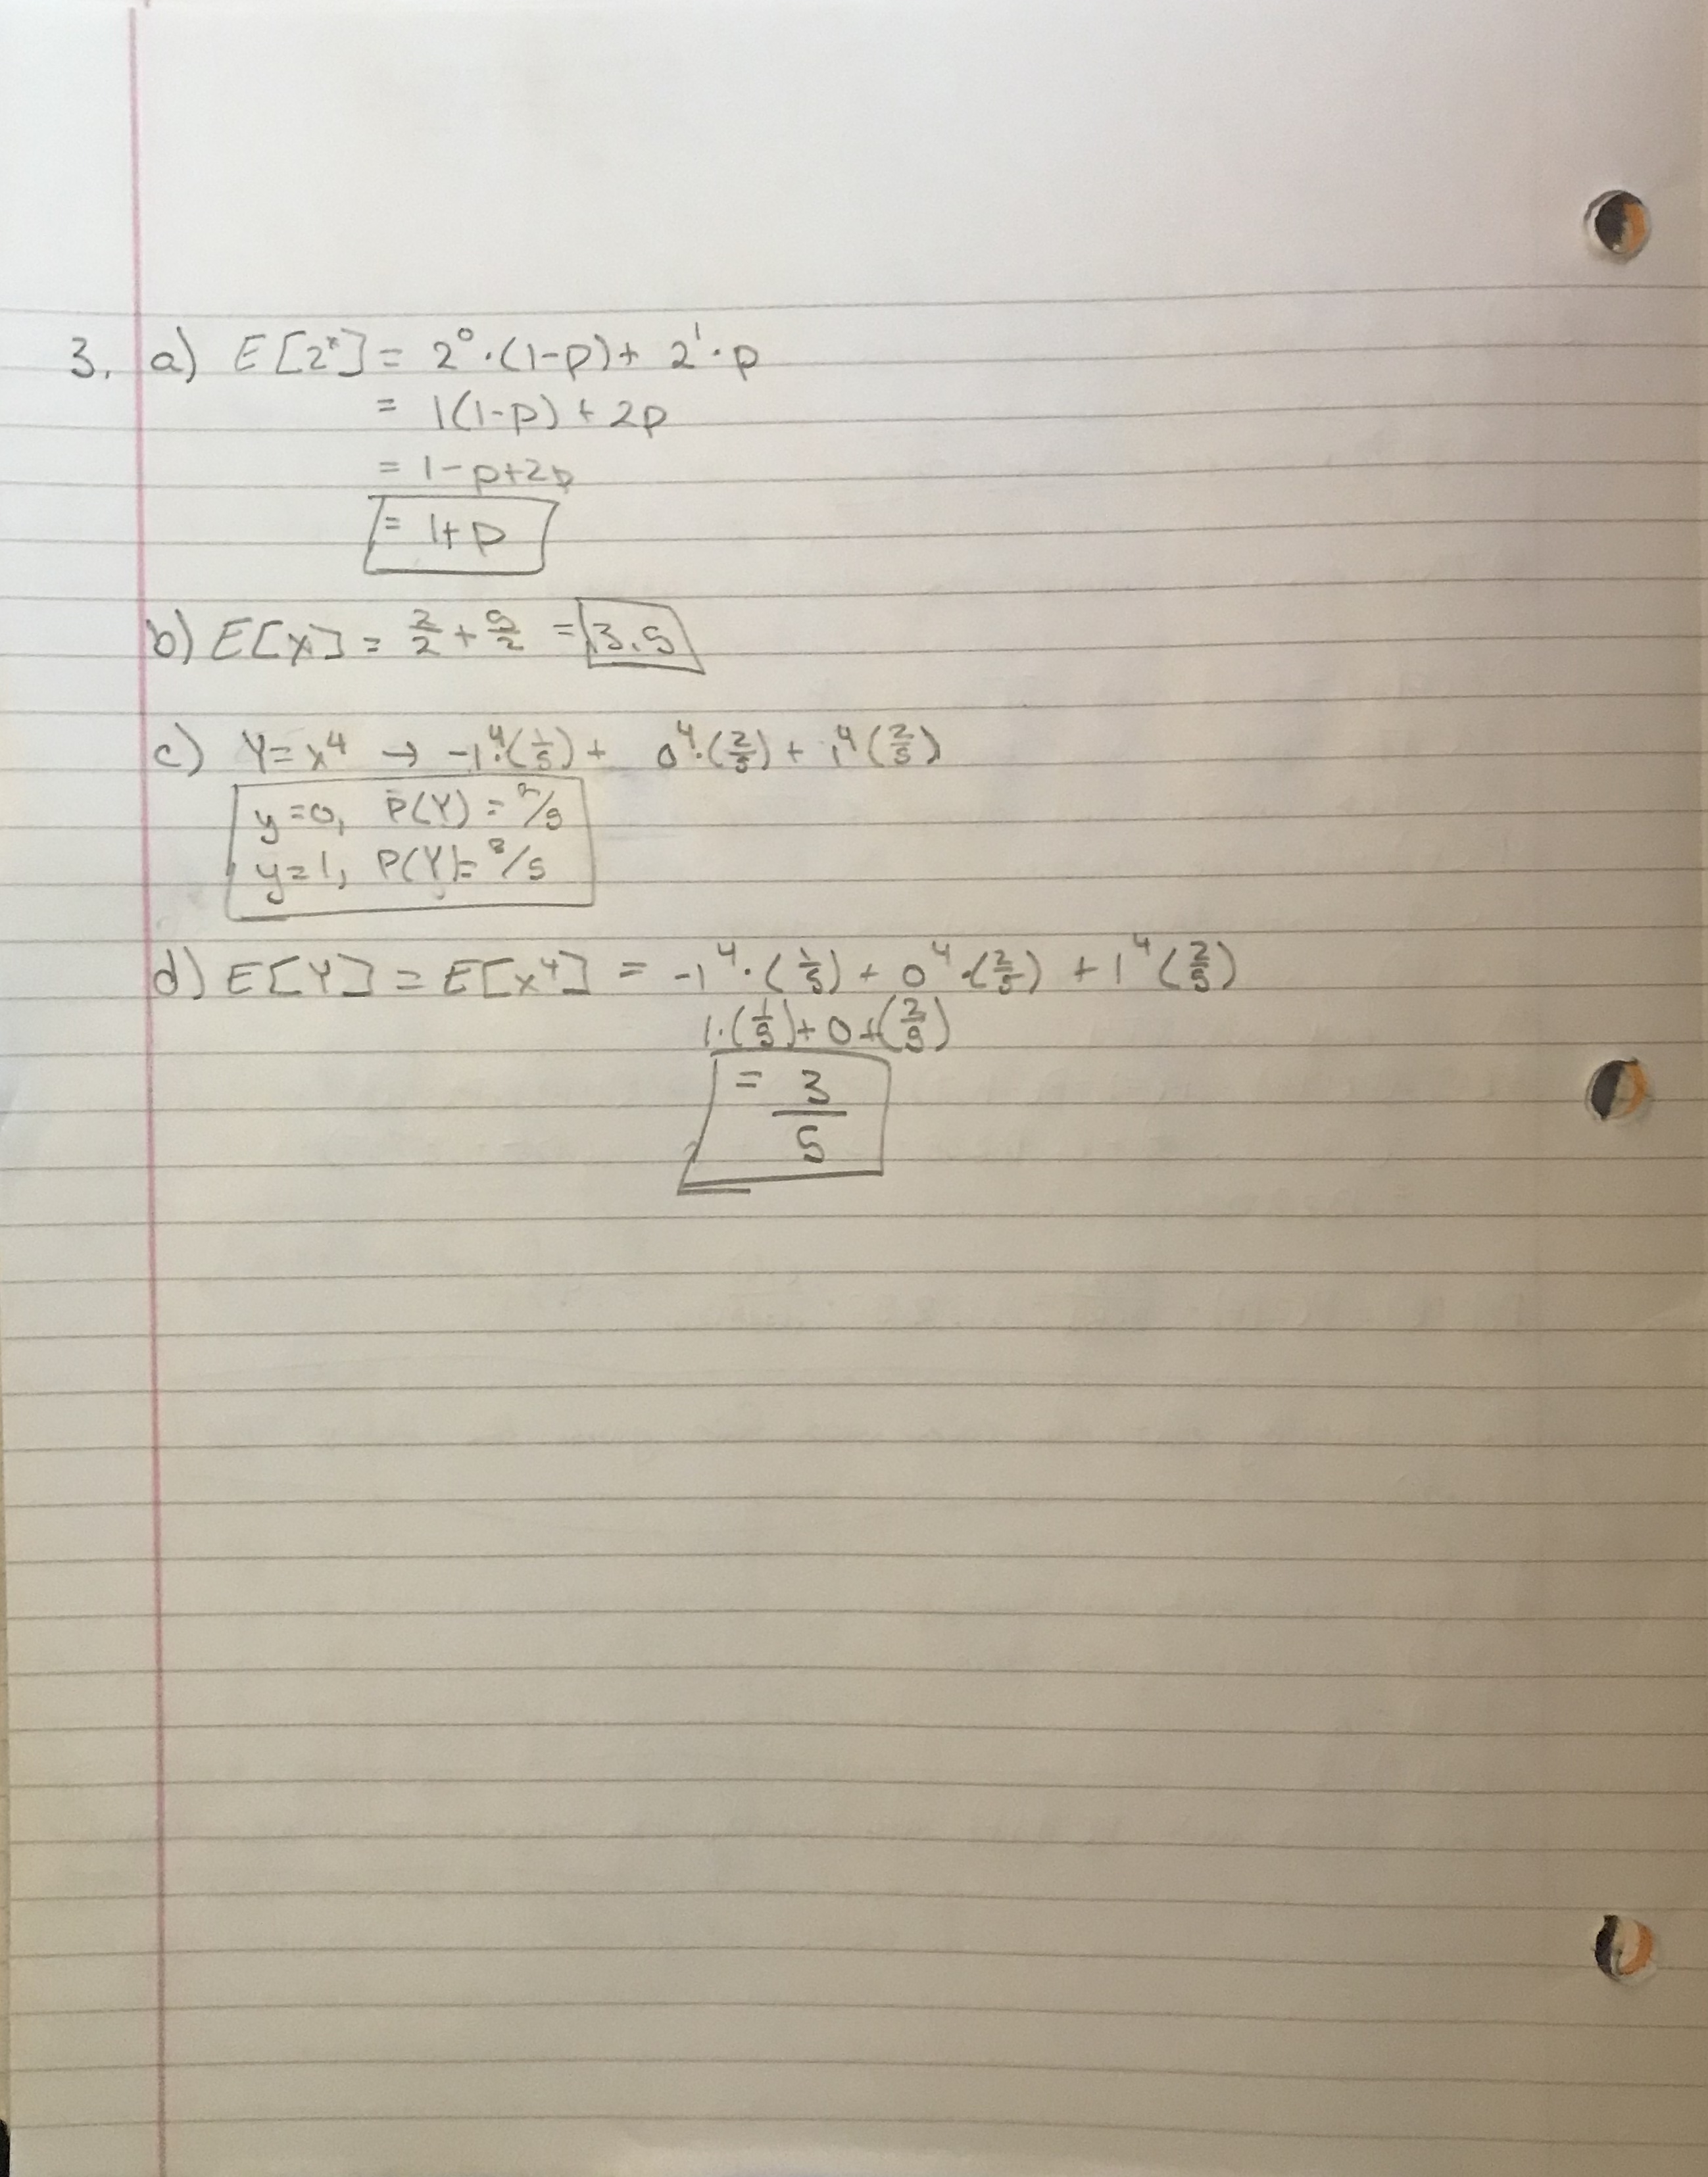 3. a) E[2ˣ] = 2⁰·(1-p) + 2¹·p
= 1(1-p) + 2p
= 1-p+2p
= 1+p
b) E[x] = 2/2 + 5/2 = 3.5
c) Y=x⁴ → -1⁴·(1/5) + 0⁴·(2/5) + 1⁴(2/5)
y=0, P(Y) = 2/5
y=1, P(Y)= 3/5
d) E[Y] = E[x⁴] = -1⁴·(1/5) + 0⁴·(2/5) + 1⁴(2/5)
1·(1/5)+0+(2/5)
= 3/5